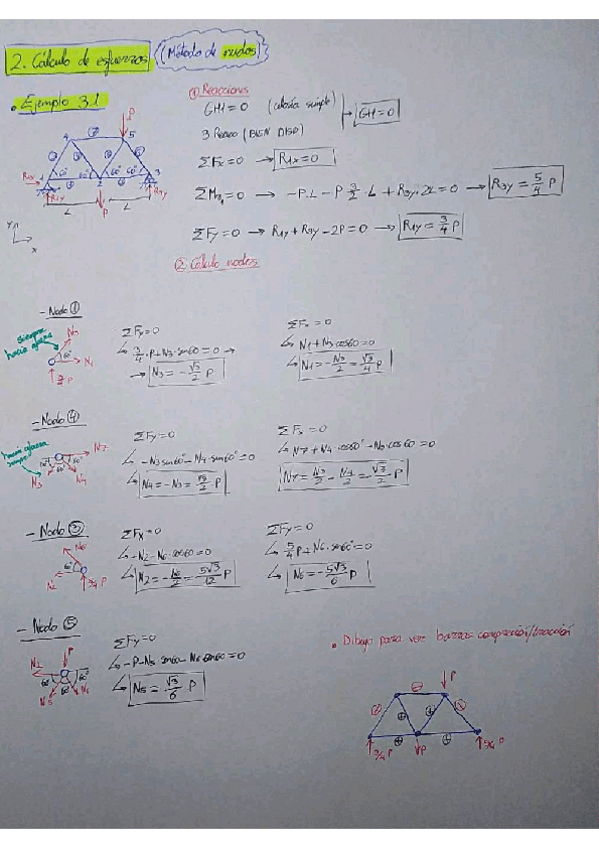 2. Cálculo de esfuerzos (Método de nudos)
• Ejemplo 3.1
① Reacciones
GHI=0 (celosía simple) → GHI=0
ΣFx=0 → R1x=0
ΣM1=0 → -P·L - P·3/2·L + R3y·2L=0 → R3y=5/4 P
ΣFy=0 → R1y+R3y-2P=0 → R1y=3/4 P
4 5 P
1 2 3
60° 60° 60° 60°
R1x R1y P R3y
L L
y x
② Cálculo nodos
- Nodo ①
siempre hacia afuera
N3 60° N1
3/4 P
ΣFy=0
3/4·P+N3·sen60=0 →
→ N3=-√3/2 P
ΣFx=0
N1+N3·cos60=0
N1=-N3/2=√3/4 P
- Nodo ④
hacia afuera siempre
N7 60° 60° N3 N4
ΣFy=0
-N3sen60°-N4·sen60°=0
N4=-N3=√3/2 P
ΣFx=0
N7+N4·cos60°-N3·cos60=0
N7=N3/2-N4/2=-√3/2 P
- Nodo ③
N6 60° N2 5/4 P
ΣFx=0
-N2-N6·cos60=0
N2=-N6/2=5√3/12 P
ΣFy=0
5/4 P+N6·sen60°=0
N6=-5√3/6 P
- Nodo ⑤
P N7 60° 60° N5 N6
ΣFy=0
-P-N5·sen60-N6·sen60=0
N5=√3/6 P
• Dibujo para ver barras compresión/tracción
P
3/4 P P 5/4 P